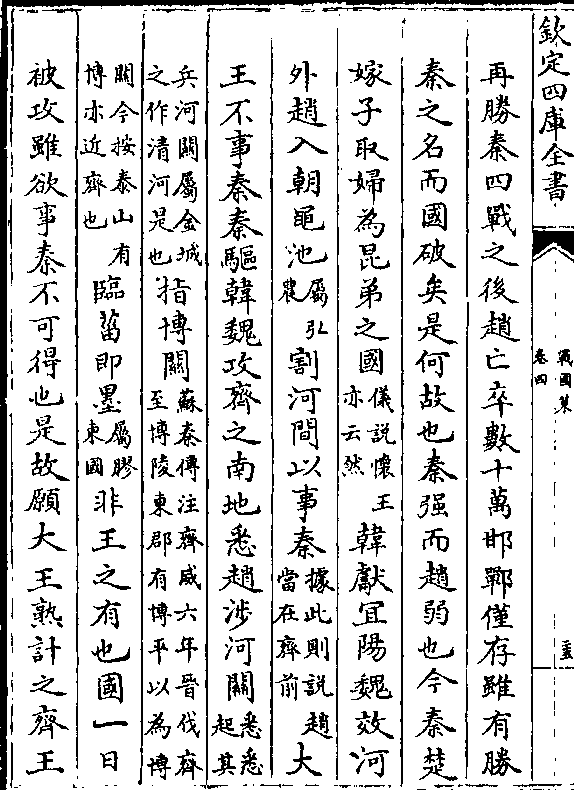 欽定四庫全書
戰國策
卷四
再勝秦四戰之後趙亡卒數十萬邯鄲僅存雖有勝
秦之名而國破矣是何故也秦强而趙弱也今秦楚
嫁子取婦為昆弟之國儀說懷王亦云然韓獻宜陽魏效河
外趙入朝黽池屬弘農割河間以事秦據此則說趙當在齊前大
王不事秦秦驅韓魏攻齊之南地悉趙涉河關悉悉起其
兵河關屬金城之作清河是也指博關蘇秦傳注齊威六年晉伐齊至博陵東郡有博平以為博
關今按泰山有博亦近齊也臨菑即墨屬膠東國非王之有也國一日
被攻雖欲事秦不可得也是故願大王熟計之齊王